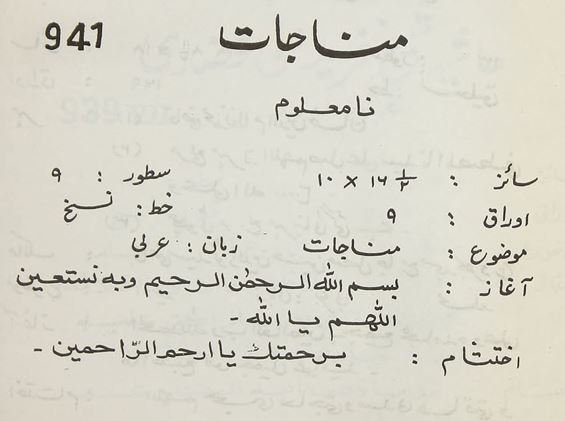 941
مناجات
نامعلوم
سائز : ۱۶ ۱/۲ × ۱۰ سطور : ۹
اوراق : ۹ خط : نسخ
موضوع : مناجات زبان : عربی
آغاز : بسم الله الرحمٰن الرحیم وبه نستعین
اللهم یا الله -
اختتام : برحمتك یا ارحم الرّاحمین -